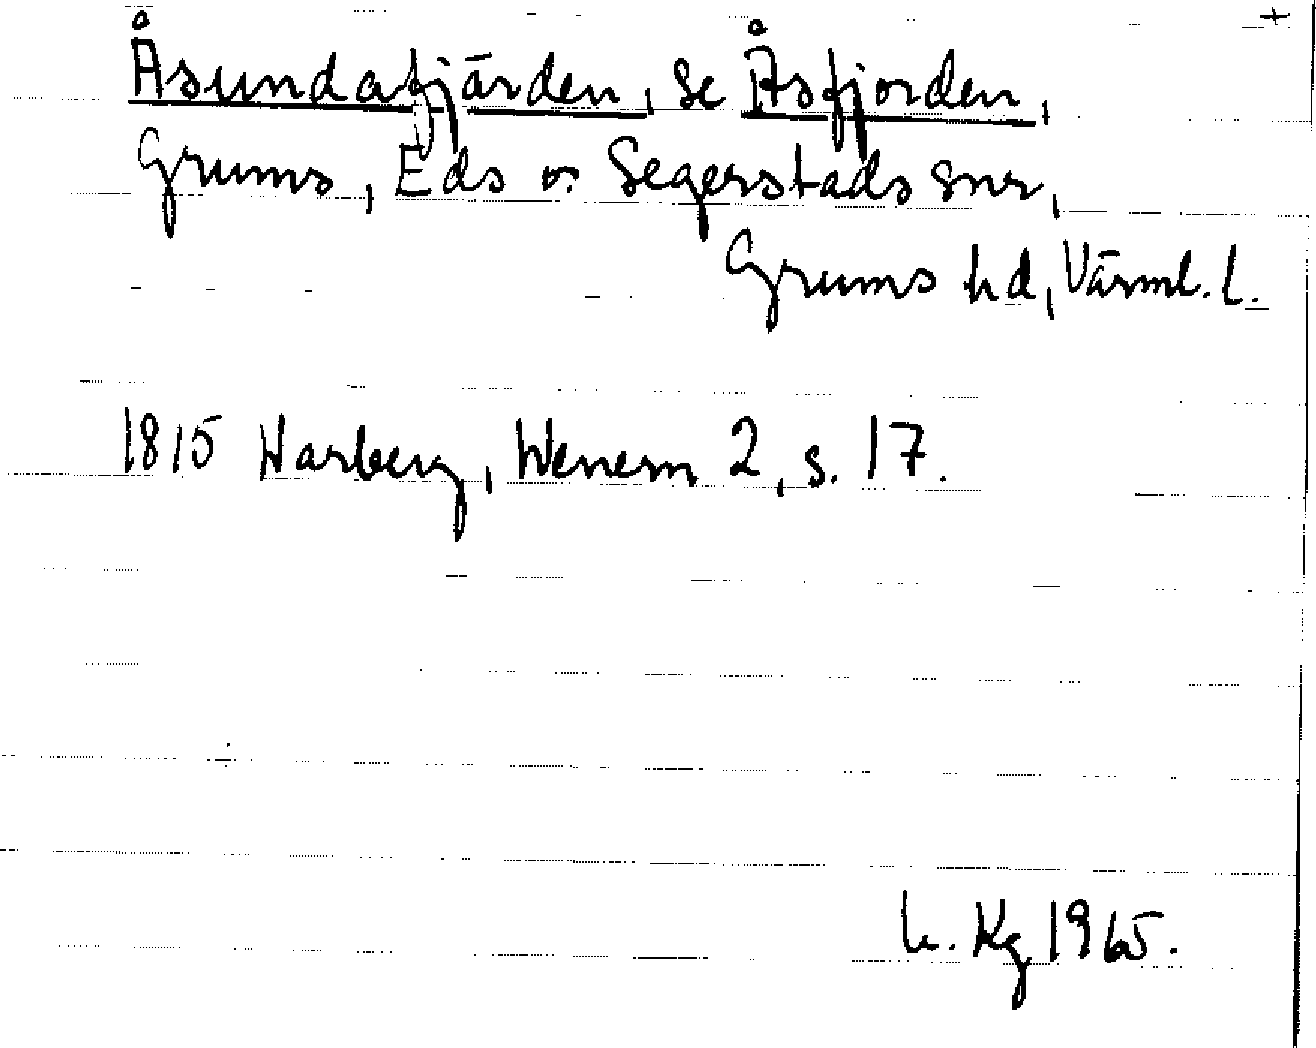 +
Åsundafjärden, se Åsfjorden,
Grums, Eds o. Segerstads snr,
Grums hd, Värml. l.
1815 Warberg, Wenern 2, s. 17.
Kg 1965.